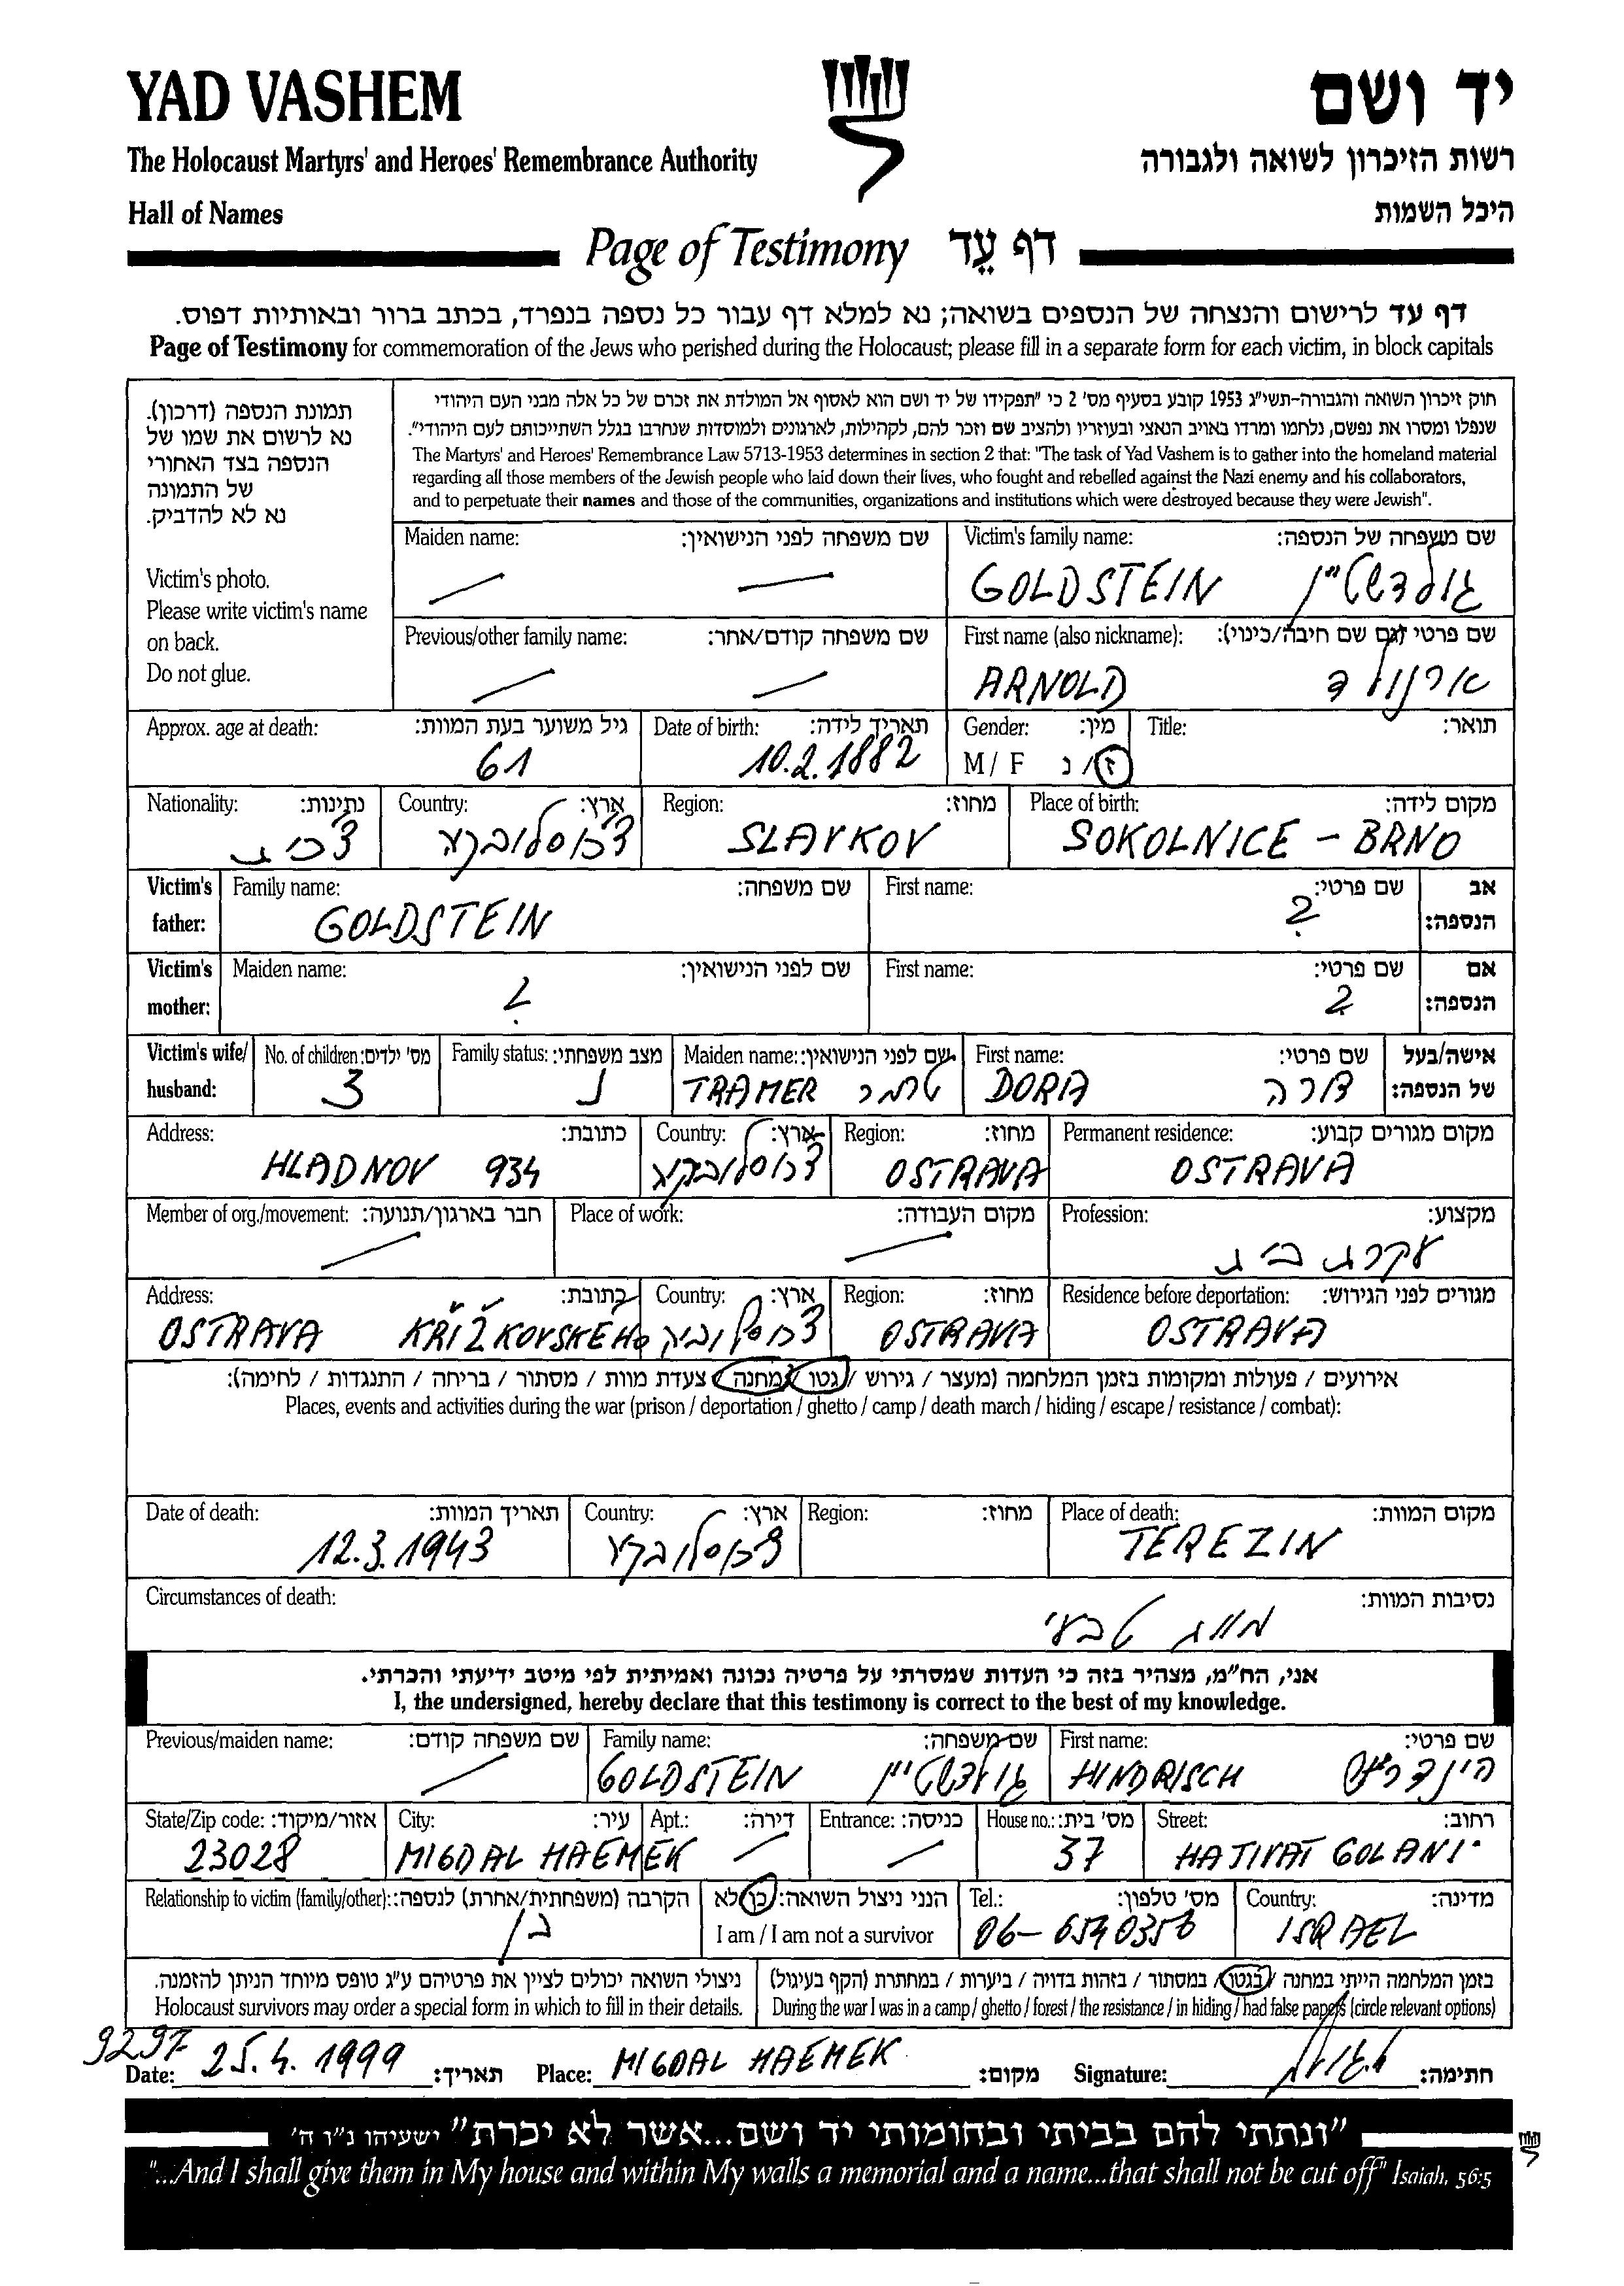 YAD VASHEM
יד ושם
The Holocaust Martyrs' and Heroes' Remembrance Authority
רשות הזיכרון לשואה ולגבורה
Hall of Names
היכל השמות
Page of Testimony דף עֵד
דף עד לרישום והנצחה של הנספים בשואה; נא למלא דף עבור כל נספה בנפרד, בכתב ברור ובאותיות דפוס.
Page of Testimony for commemoration of the Jews who perished during the Holocaust; please fill in a separate form for each victim, in block capitals
תמונת הנספה (דרכון).
נא לרשום את שמו של
הנספה בצד האחורי
של התמונה
נא לא להדביק.
Victim's photo.
Please write victim's name
on back.
Do not glue.
חוק זיכרון השואה והגבורה-תשי"ג 1953 קובע בסעיף מס' 2 כי "תפקידו של יד ושם הוא לאסוף אל המולדת את זכרם של כל אלה מבני העם היהודי
שנפלו ומסרו את נפשם, נלחמו ומרדו באויב הנאצי ובעוזריו ולהציב שם וזכר להם, לקהילות, לארגונים ולמוסדות שנחרבו בגלל השתייכותם לעם היהודי".
The Martyrs' and Heroes' Remembrance Law 5713-1953 determines in section 2 that: "The task of Yad Vashem is to gather into the homeland material
regarding all those members of the Jewish people who laid down their lives, who fought and rebelled against the Nazi enemy and his collaborators,
and to perpetuate their names and those of the communities, organizations and institutions which were destroyed because they were Jewish".
Maiden name: שם משפחה לפני הנישואין: Victim's family name: שם משפחה של הנספה:
GOLDSTEIN גולדשטיין
Previous/other family name: שם משפחה קודם/אחר: First name (also nickname): שם פרטי (גם שם חיבה/כינוי):
ARNOLD ארנולד
Approx. age at death: גיל משוער בעת המוות: Date of birth: תאריך לידה: Gender: מין: Title: תואר:
61 10.2.1882 M / F ז / נ
Nationality: נתינות: Country: ארץ: Region: מחוז: Place of birth: מקום לידה:
צ'כית צ'כוסלובקיה SLAVKOV SOKOLNICE - BRNO
Victim's father: Family name: שם משפחה: First name: שם פרטי: אב הנספה:
GOLDSTEIN ?
Victim's mother: Maiden name: שם לפני הנישואין: First name: שם פרטי: אם הנספה:
? ?
Victim's wife/ husband: No. of children: מס' ילדים: Family status: מצב משפחתי: Maiden name: שם לפני הנישואין: First name: שם פרטי: אישה/בעל של הנספה:
3 נ TRAMER טרמר DORA דורה
Address: כתובת: Country: ארץ: Region: מחוז: Permanent residence: מקום מגורים קבוע:
HLADNOV 934 צ'כוסלובקיה OSTRAVA OSTRAVA
Member of org./movement: חבר בארגון/תנועה: Place of work: מקום העבודה: Profession: מקצוע:
עקרת בית
Address: כתובת: Country: ארץ: Region: מחוז: Residence before deportation: מגורים לפני הגירוש:
OSTRAVA KŘÍŽKOVSKEHO צ'כוסלובקיה OSTRAVA OSTRAVA
אירועים / פעולות ומקומות בזמן המלחמה (מעצר / גירוש / גטו / מחנה / צעדת מוות / מסתור / בריחה / התנגדות / לחימה):
Places, events and activities during the war (prison / deportation / ghetto / camp / death march / hiding / escape / resistance / combat):
Date of death: תאריך המוות: Country: ארץ: Region: מחוז: Place of death: מקום המוות:
12.3.1943 צ'כוסלובקיה TEREZIN
Circumstances of death: נסיבות המוות:
מוות טבעי
אני, הח"מ, מצהיר בזה כי העדות שמסרתי על פרטיה נכונה ואמיתית לפי מיטב ידיעתי והכרתי.
I, the undersigned, hereby declare that this testimony is correct to the best of my knowledge.
Previous/maiden name: שם משפחה קודם: Family name: שם משפחה: First name: שם פרטי:
GOLDSTEIN גולדשטיין HINDRISCH הינדריש
State/Zip code: אזור/מיקוד: City: עיר: Apt.: דירה: Entrance: כניסה: House no.: מס' בית: Street: רחוב:
23028 MIGDAL HAEMEK 37 HATIVAT GOLANI
Relationship to victim (family/other): הקרבה (משפחתית/אחרת) לנספה: הנני ניצול השואה: כן/לא Tel.: מס' טלפון: Country: מדינה:
בן I am / I am not a survivor 06-6540356 ISRAEL
ניצולי השואה יכולים לציין את פרטיהם ע"ג טופס מיוחד הניתן להזמנה. בזמן המלחמה הייתי במחנה / בגטו / במסתור / בזהות בדויה / ביערות / במחתרת (הקף בעיגול)
Holocaust survivors may order a special form in which to fill in their details. During the war I was in a camp / ghetto / forest / the resistance / in hiding / had false papers (circle relevant options)
9297
Date: 25.4.1999 תאריך: Place: MIGDAL HAEMEK מקום: Signature: חתימה:
"ונתתי להם בביתי ובחומותי יד ושם...אשר לא יכרת" ישעיהו נ"ו ה'
"...And I shall give them in My house and within My walls a memorial and a name...that shall not be cut off" Isaiah, 56:5